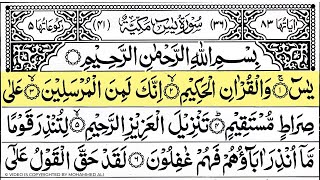 اٰیَاتُهَا ٨٣ (٣٦) سُوْرَةُ یٰسٓ مَكِّیَّةٌ (٤١) رُكُوْعَاتُهَا ٥
بِسْمِ اللّٰهِ الرَّحْمٰنِ الرَّحِیْمِ
یٰسٓ ۝١ وَالْقُرْاٰنِ الْحَكِیْمِ ۝٢ اِنَّكَ لَمِنَ الْمُرْسَلِیْنَ ۝٣ عَلٰی
صِرَاطٍ مُّسْتَقِیْمٍ ۝٤ تَنْزِیْلَ الْعَزِیْزِ الرَّحِیْمِ ۝٥ لِتُنْذِرَ قَوْمًا
مَّاۤ اُنْذِرَ اٰبَآؤُهُمْ فَهُمْ غٰفِلُوْنَ ۝٦ لَقَدْ حَقَّ الْقَوْلُ عَلٰۤی
© VIDEO IS COPYRIGHTED BY MOHAMMED ALI